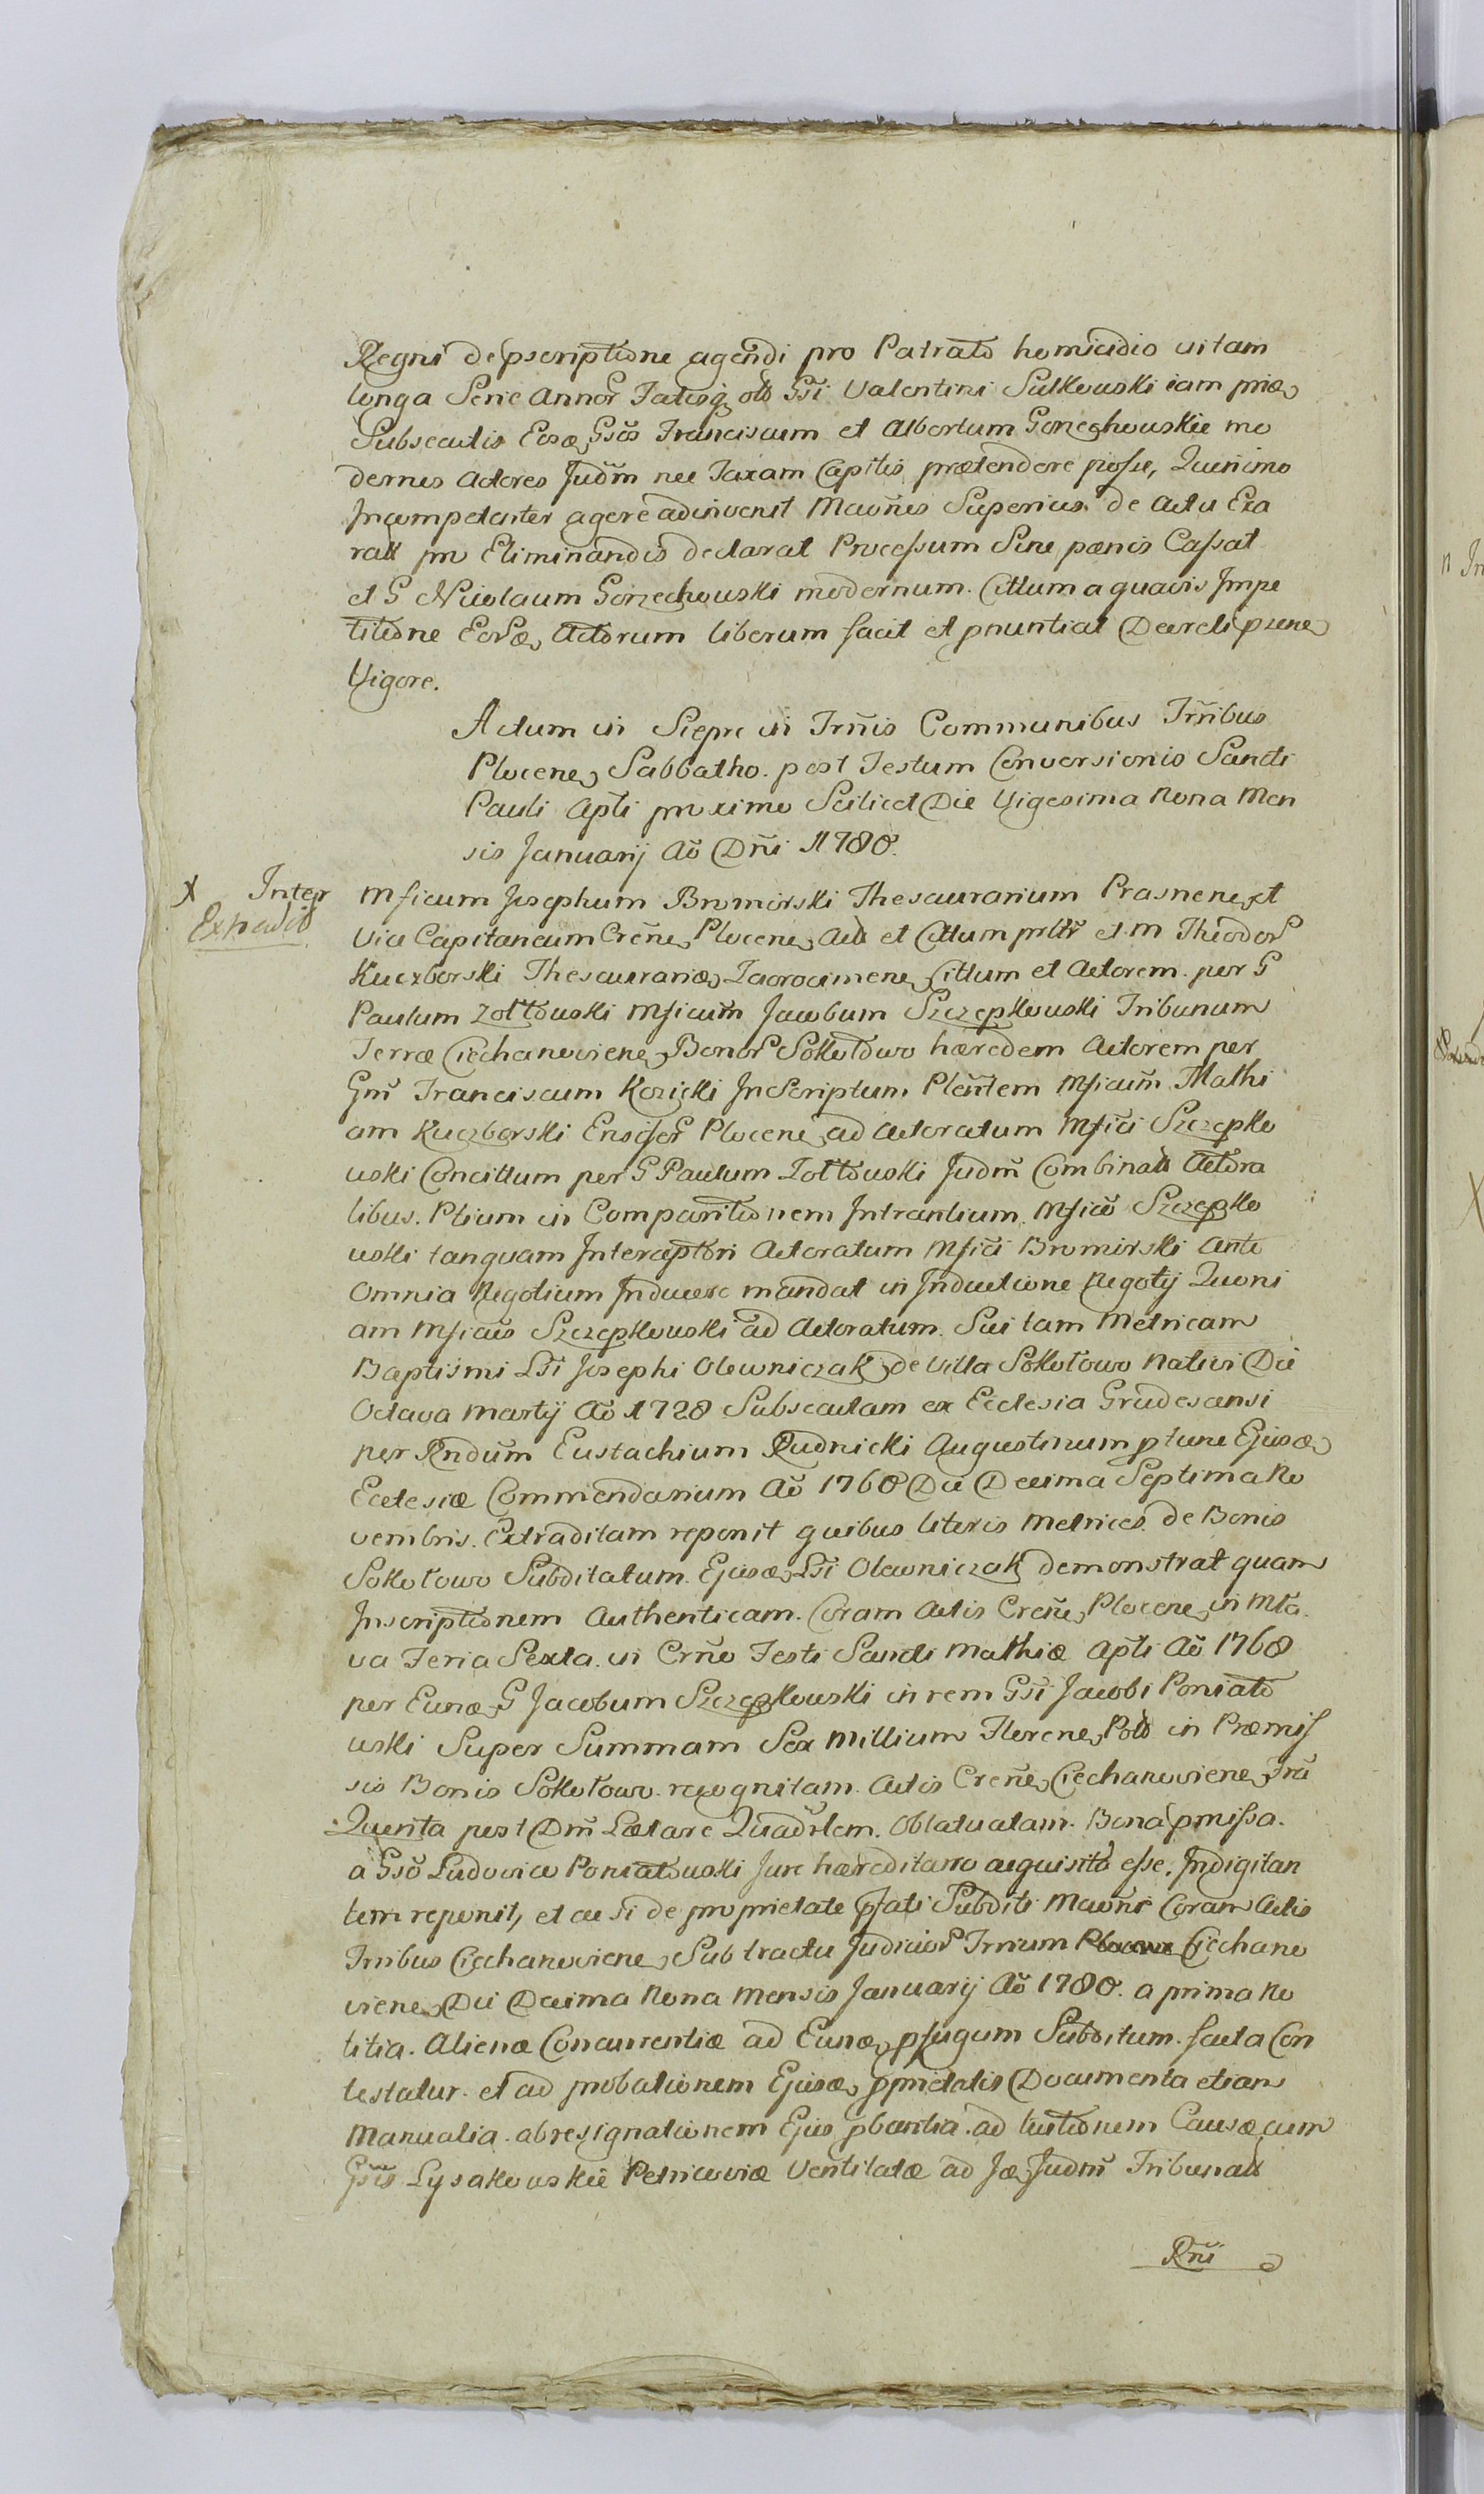 Regni de pscriptione agendi pro Patrato homicidio vitam
longa Serie Annor Fatisq olb Gsi Valentini Sulkowski iam priæ
Subsecutis Eosæ Gsos Franciscum et Albertum Gorzechowskie mo
dernos Actores Judm nec Taxam Capitis prætendere posse, Quinimo
Incompetenter agere adinvenit Mavñs Superius de Actu Exa
ratt pro Eliminandis declarat Processum Sine pænis Cassat
et G Nicolaum Gorzechowski modernum Cittum a quavis Impe
titione Eorþæ Actorum liberum facit et pnuntiat Decreti psene
Vigore.
Actum in Sieprc in Trñis Communibus Trñibus
Plocene Sabbatho post Festum Conversionis Sancti
Pauli Apli proximo Scilicet Die Vigesima Nona Men
sis Januarij Aõ Dñi 1780.
X Inter Mficum Josephum Bromirski Thesaurarium Prasnene et
Vice Capitaneum Creñe Plocene Act et Citum prltr et M Theodor
Kuczborski Thesaurariæ Zavrocimene Cittum et Actorem per G
Paulum Zołtowski Mficum Jacobum Szczepkowski Tribunum
Terræ Ciechanoviene Bonor Sokołowo hæredem Actorem per
Gm Franciscum Kozicki In Scriptum Plentem Mficum Mathi
am Kuczborski Ensifer Plocene ad Actoratum Mfici Szczepko
wski Concittum per G Paulum Zołtowski Judm Combinatt Actora
libus Ptium in Comparitionem Intrantium Mfico Szczepko
wski tanquam Interceptori Actoratum Mfici Bromirski Ante
Omnia Negotium Inducere mandat in Inductione Negotij Quoni
am Mficus Szczepkowski ad Actoratum Sui tam Metricam
Baptismi Lsi Josephi Olewniczak de Villa Sokołowo Nativi Die
Octava Martij Aõ 1728 Subsecutam ex Ecclesia Grudescensi
per Rndum Eustachium Rudnicki Augustinum ptunc Ejusæ
Ecclesiæ Commendarium Aõ 1768 Die Decima Septima No
vembris Extraditam reponit quibus literis Metrices de Bonis
Sokołowo Subditatum Ejusæ Lsi Olewniczak demonstrat quam
Inscriptionem Authenticam Coram Actis Creñe Plocene in Mła
va Feria Sexta in Crñe Festi Sancti Mathiæ Apli Aõ 1768
per Eunæ G Jacobum Szczepkowski in rem Gsi Jacobi Poniato
wski Super Summam Sex Millium Florene Polo in Præmis
sis Bonis Sokołowo recognitam Actis Creñe Ciechanoviene Fria
Quinta post Dm Lætare Quadrlem Oblatuatam Bona pmissa
a Gso Ludovico Poniatowski Jure hæreditario acquisita esse Indigitan
tem reponit, et ac si de proprietate pfati Subditi Mavñs Coram Actis
Trnibus Ciechanoviene Sub tractu Judicior Trnium Ciechano
viene Die Decima Nona Mensis Januarij Aõ 1780 a prima No
titia Alienæ Concurrentiæ ad Eunæ pfugum Subditum facta Con
testatur et ad probationem Ejusæ pprietatis Documenta etiam
Manualia ab resignationem Ejus pbantia ad luitionem Causæ cum
Gsis Lysakowskie Petricoviæ Ventilatæ ad Jæ Judm Tribunatt
Rñi